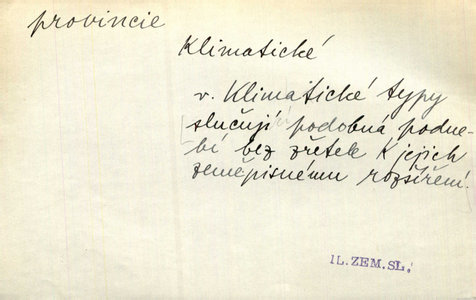 provincie
Klimatické
v. Klimatické typy
slučují podobná podne-
bí bez zřetele k jejich
zeměpisnému rozšíření.
IL. ZEM. SL.